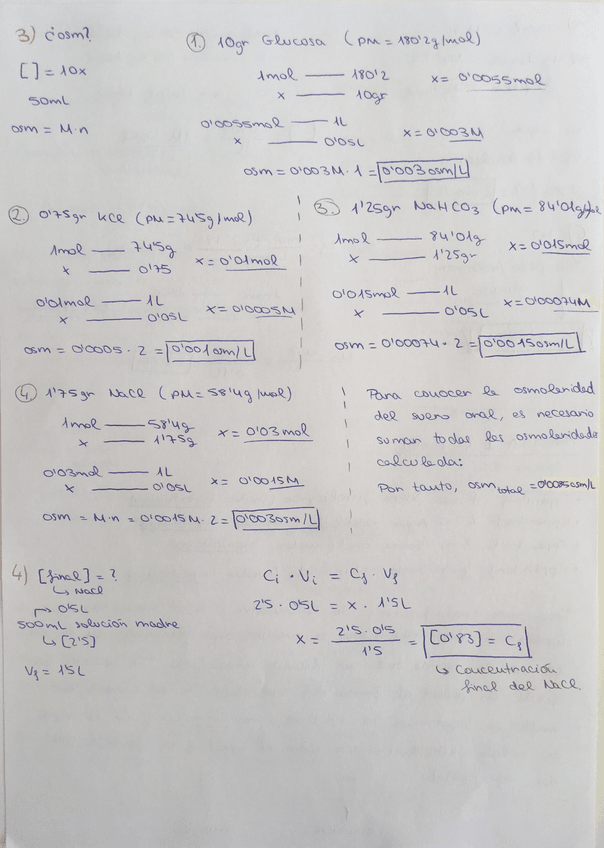 3) ¿osm?
[ ] = 10x
50mL
osm = M·n
1. 10gr Glucosa (PM = 180'2g/mol)
1mol —— 180'2
x —— 10gr
x = 0'0055mol
0'0055mol —— 1L
x —— 0'05L
x = 0'003M
osm = 0'003M · 1 = 0'003osm/L
2. 0'75gr KCl (PM = 74'5g/mol)
1mol —— 74'5g
x —— 0'75
x = 0'01mol
0'01mol —— 1L
x —— 0'05L
x = 0'0005M
osm = 0'0005 · 2 = 0'001osm/L
3. 1'25gr NaHCO3 (PM = 84'01g/mol
1mol —— 84'01g
x —— 1'25gr
x = 0'015mol
0'015mol —— 1L
x —— 0'05L
x = 0'00074M
osm = 0'00074 · 2 = 0'0015osm/L
4. 1'75gr NaCl (PM = 58'4g/mol)
1mol —— 58'4g
x —— 1'75g
x = 0'03mol
0'03mol —— 1L
x —— 0'05L
x = 0'0015M
osm = M·n = 0'0015M · 2 = 0'003osm/L
Para conocer la osmolaridad
del suero oral, es necesario
sumar todas las osmolaridades
calculada:
Por tanto, osm total = 0'0085osm/L
4) [final] = ?
↳ NaCl
↱ 0'5L
500mL solución madre
↳ [2'5]
Vf = 1'5L
Ci · Vi = Cf · Vf
2'5 · 0'5L = x · 1'5L
x = 2'5 · 0'5 / 1'5 = [0'83] = Cf
↳ Concentración
final del NaCl.